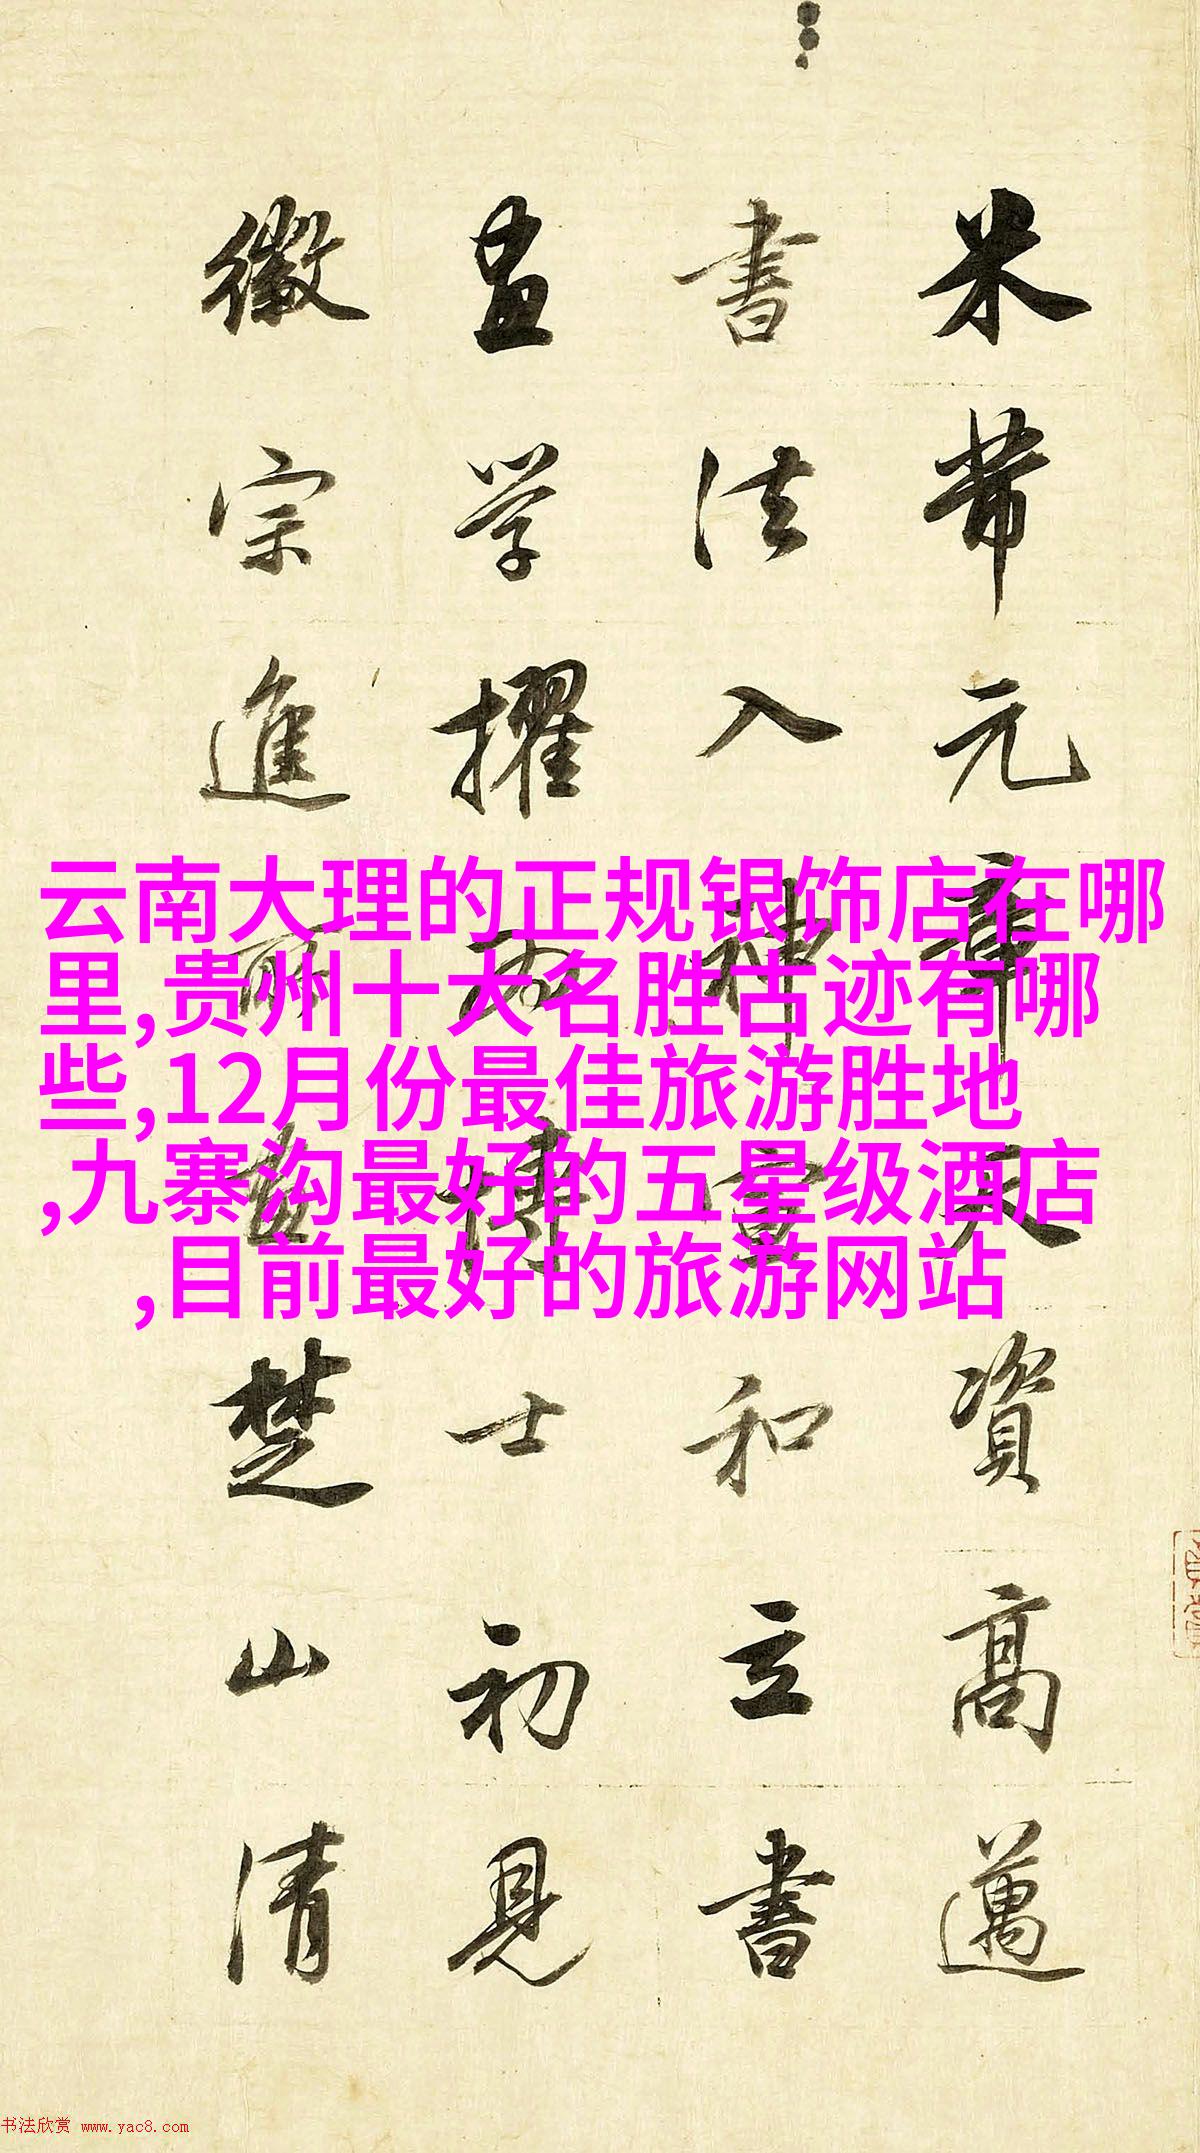 米芾元章天資高邁
書法入神宣和立書
畫学擢為博士初見
徽宗進所畫楚山清
云南大理的正规银饰店在哪
里,贵州十大名胜古迹有哪
些,12月份最佳旅游胜地
,九寨沟最好的五星级酒店
,目前最好的旅游网站
书法欣赏 www.yac8.com